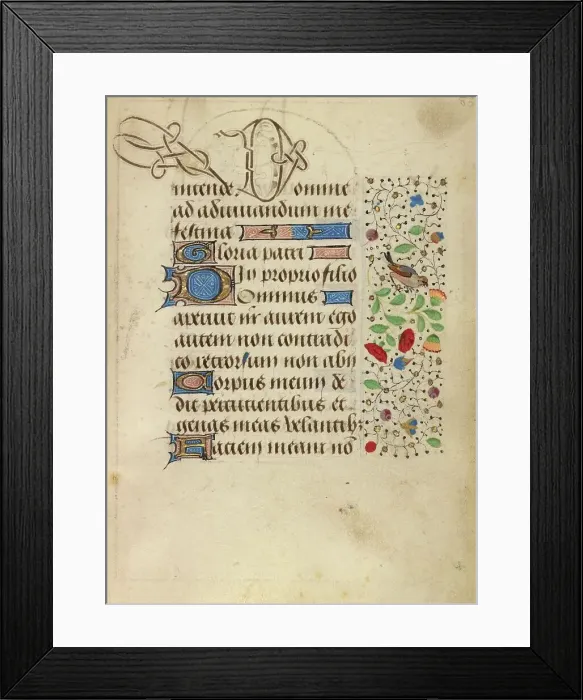 intende. Domine
ad adiuuandum me
festina
Gloria patri
In proprio filio
Dominus
aperuit m̄ aurem ego
autem non contradi
co retrorsum non abij
Corpus meum de
di percutientibus et
genas meas vellantib;
Faciem meam nō